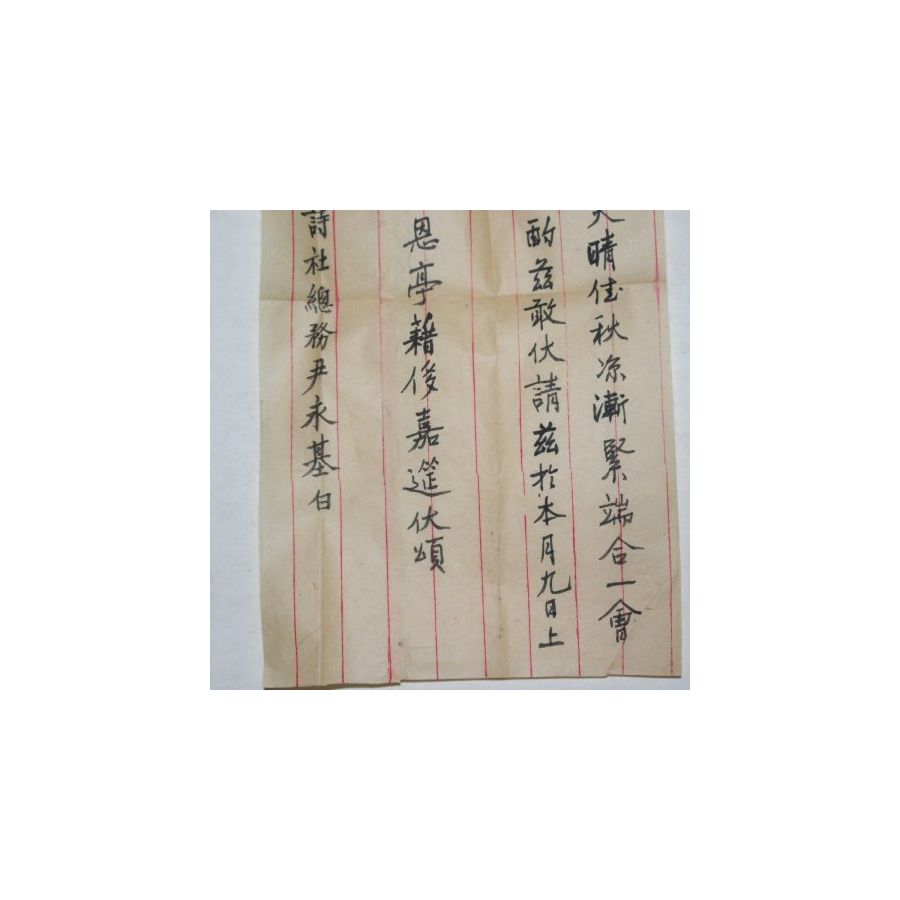 天晴佳秋凉漸緊端合一會
酌茲敢伏請茲於本月九日上
恩亭藉後嘉筵伏頌
詩社總務尹永基白